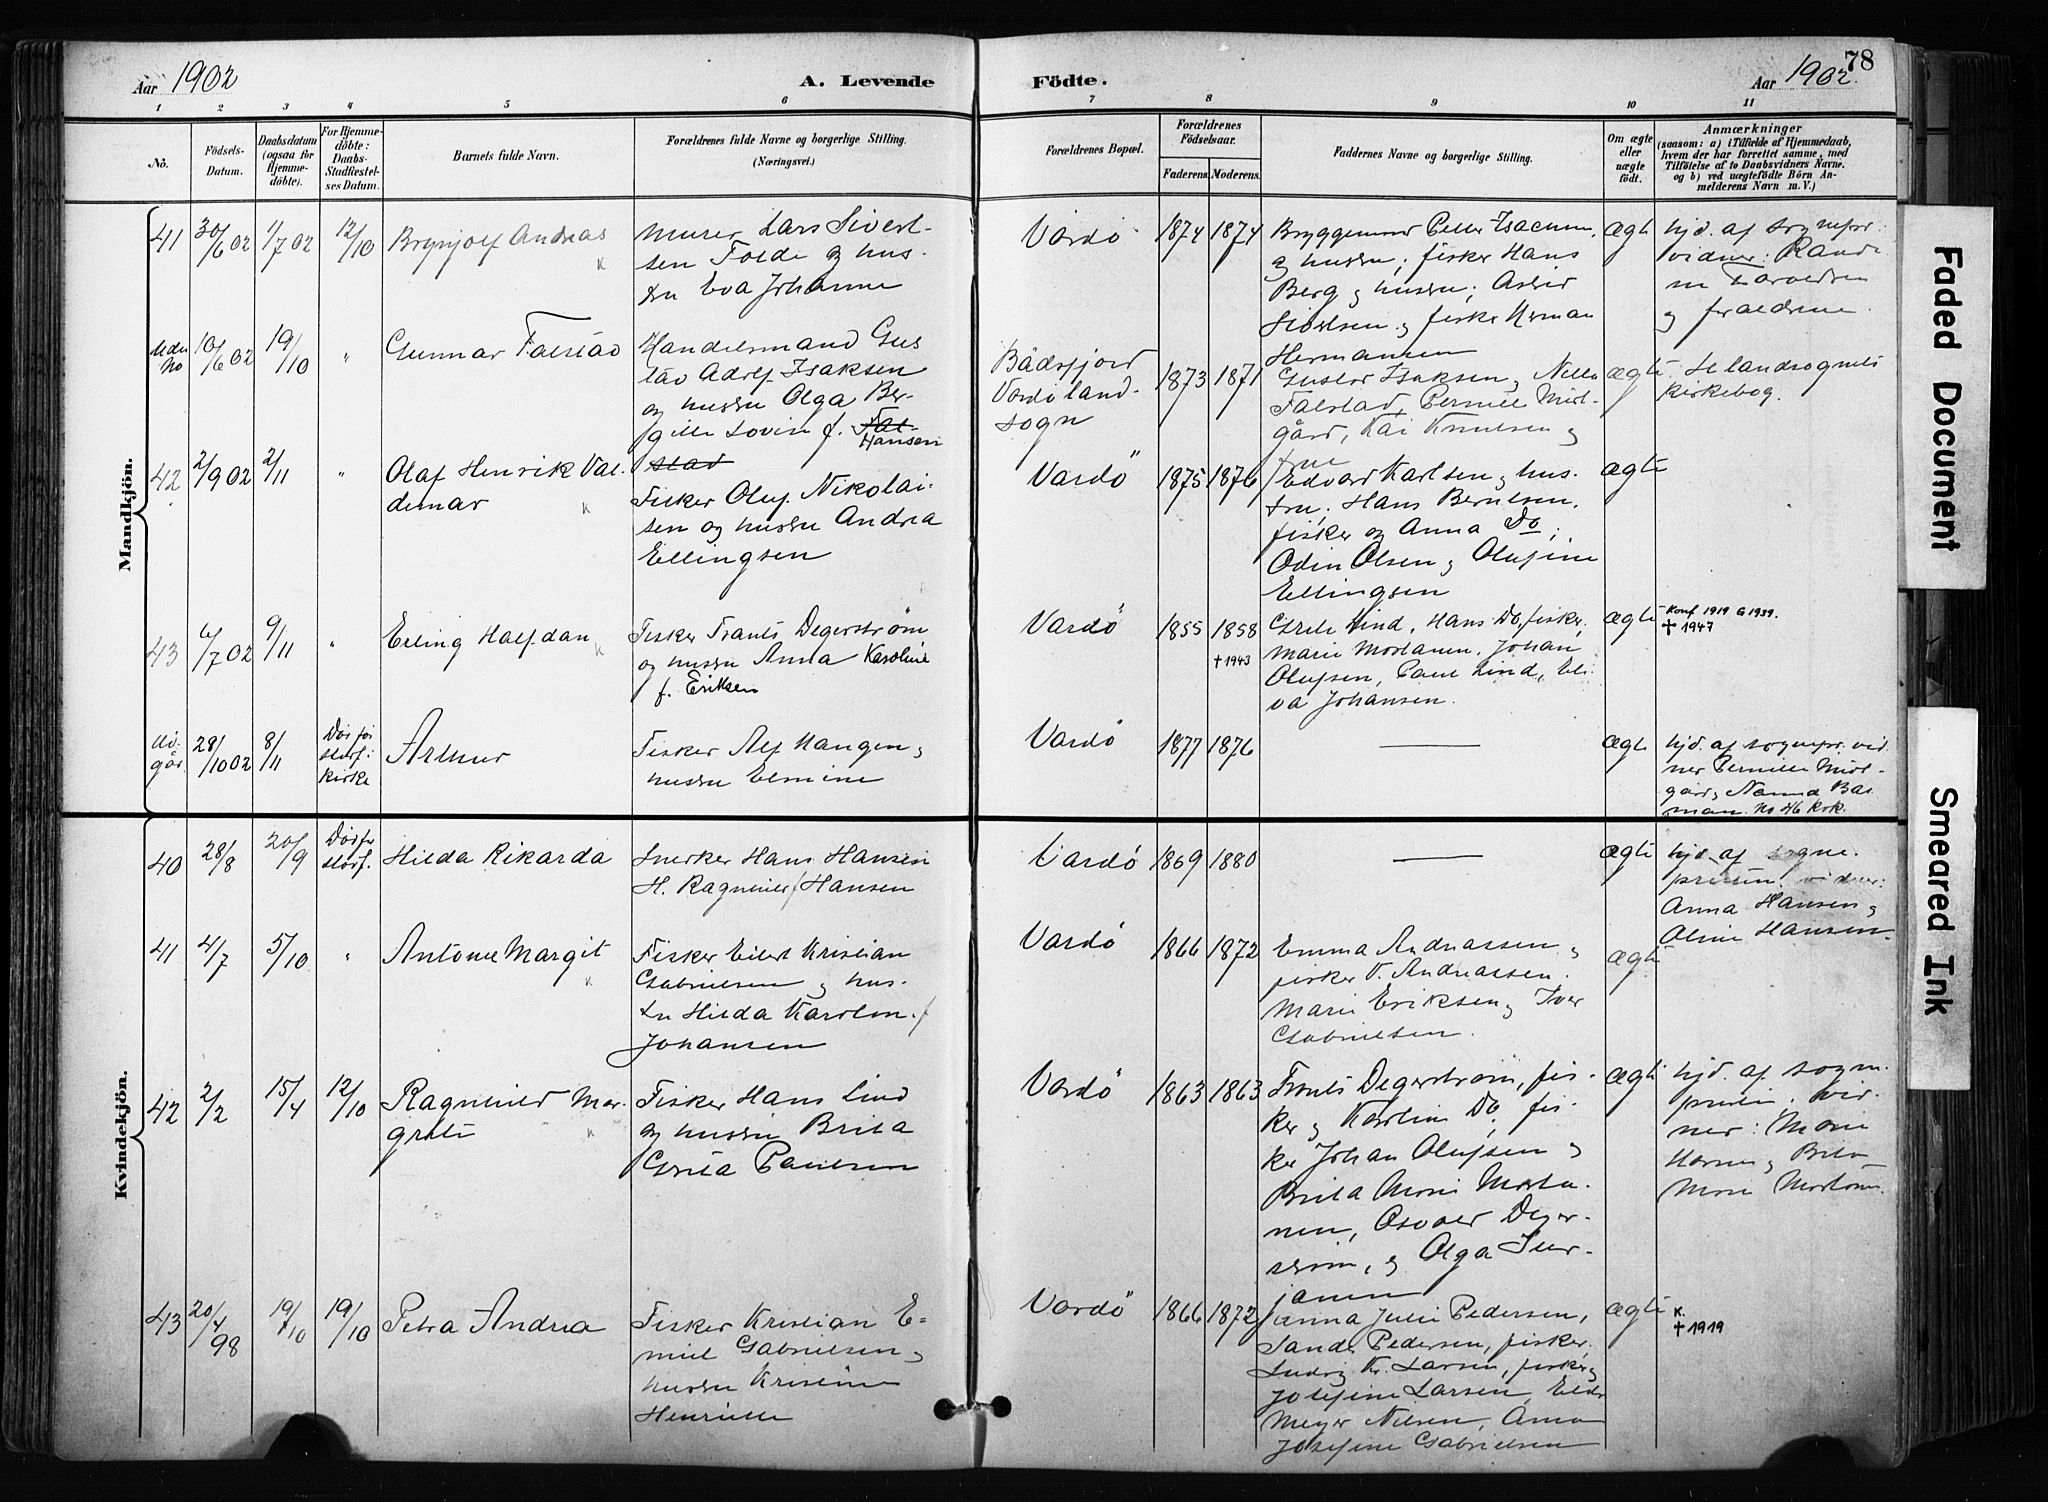 Aar 1902
A. Levende
Födte.
Aar 1902.
78
1 2 3 4 5 6 7 8 9 10 11
No.
Födsels-
Datum.
Daabsdatum
(ogsaa for
Hjemme-
döbte).
For Hjemme-
döbte:
Daabs-
Stadfæstel-
ses Datum.
Barnets fulde Navn.
Forældrenes fulde Navne og borgerlige Stilling.
(Næringsvei.)
Forældrenes Bopæl.
Forældrenes
Födselsaar.
Faderens. Moderens.
Faddernes Navne og borgerlige Stilling.
Om ægte
eller
uægte
födt.
Anmærkninger
(saasom: a) i Tilfælde af Hjemmedaab,
hvem der har forrettet samme, med
Tilföielse af to Daabsvidners Navne,
og b) ved uægtefödte Börn An-
melderens Navn m. V.)
Mandkjön.
41
30/6 02
1/7 02
12/10
Brynjolf Andreas
Murer Lars Sivert-
sen Folde og hus-
tru Eva Johanne
Vardö
1874 1874
og hustru; fisker Hans
Berg og hustru;
Hermansen
ægte
hjd. af sognepr.
vidner:
og forældrene.
Uden
No
10/6 02
19/10
"
Gunnar Falstad
Handelsmand Gus
tav Adolf Isaksen
og hustru Olga Ber-
gitte Lovise f. Fal-
Hansen
stad
Baadsfjord
Vardö land-
sogn
1873 1871
Gustav Isaksen og
Falstad, Pernille Midt-
gård, Kai Knutsen og
frue
ægte
Se landsognets
kirkebog.
42
2/9 02
2/11
"
Olaf Henrik Val-
demar
Fisker Oluf Nikolai-
sen og hustru Andrea
Ellingsen
Vardö
1875 1876
Edvard Karlsen og hus-
tru; Hans Berntsen,
fisker og Anna Do;
Odin Olsen og Olufine
Ellingsen
ægte
43
6/7 02
9/11
"
Erling Halfdan
Fisker Frants Degerström
og hustru Anna Karoline
f. Eriksen
Vardö
1855 1858
† 1943
Grete Lind, Hans Do, fisker,
Marie Mortensen, Johan
Olufsen, Paul Lind, Eli-
va Johansen.
ægte
Konf 1919 G 1939.
† 1947
28/10 02
8/11
Död för
stadf. i
kirke
Arthur
Fisker Alf Haugen og
hustru Elmine
Vardö
1877 1876
—
ægte
hjd. af sognepr. vid-
ner Pernille Midt-
gård og Nanna
Kvindekjön.
40
28/8
20/9
Död för
stadf.
Hilda Rikarda
Snerker Hans Hansen
H. Ragnhild f Hansen
Vardö
1869 1880
—
ægte
hjd. af sogne-
presten. vidner:
Anna Hansen og
Oline Hansen.
41
4/7
5/10
"
Antonie Margit
Fisker Eilert Kristian
Gabrielsen og hus-
tru Hilda Karolin. f
Johansen
Vardö
1866 1872
Emma Andreassen og
fisker V. Andreassen.
Marie Eriksen og Iver
Gabrielsen.
ægte
42
2/2
15/4
12/10
Ragnhild Mar-
grete
Fisker Hans Lind
og hustru Brita
Greta Paulsen
Vardö
1863 1863
Frants Degerström, fis-
ker og Karolin Do, fis-
ker Johan Olufsen og
Brita Marie Morte-
nsen, Osvald Deger-
ström, og Olga
ægte
hjd. af sogne-
presten. vid-
ner: Marie
Hansen og Brita
Marie Mortensen.
43
20/4 98
19/10
19/10
Petra Andrea
Fisker Kristian E-
mil Gabrielsen og
hustru Kristine
Henriette
Vardö
1866 1872
Anna Julie Pedersen,
Sander Pedersen, fisker,
Ludvig Kr. Larsen, fisker og
Josefine Larsen
Meyer Nilsen, Anna
Josefine Gabrielsen
ægte
K.
† 1919
Faded Document
Smeared Ink